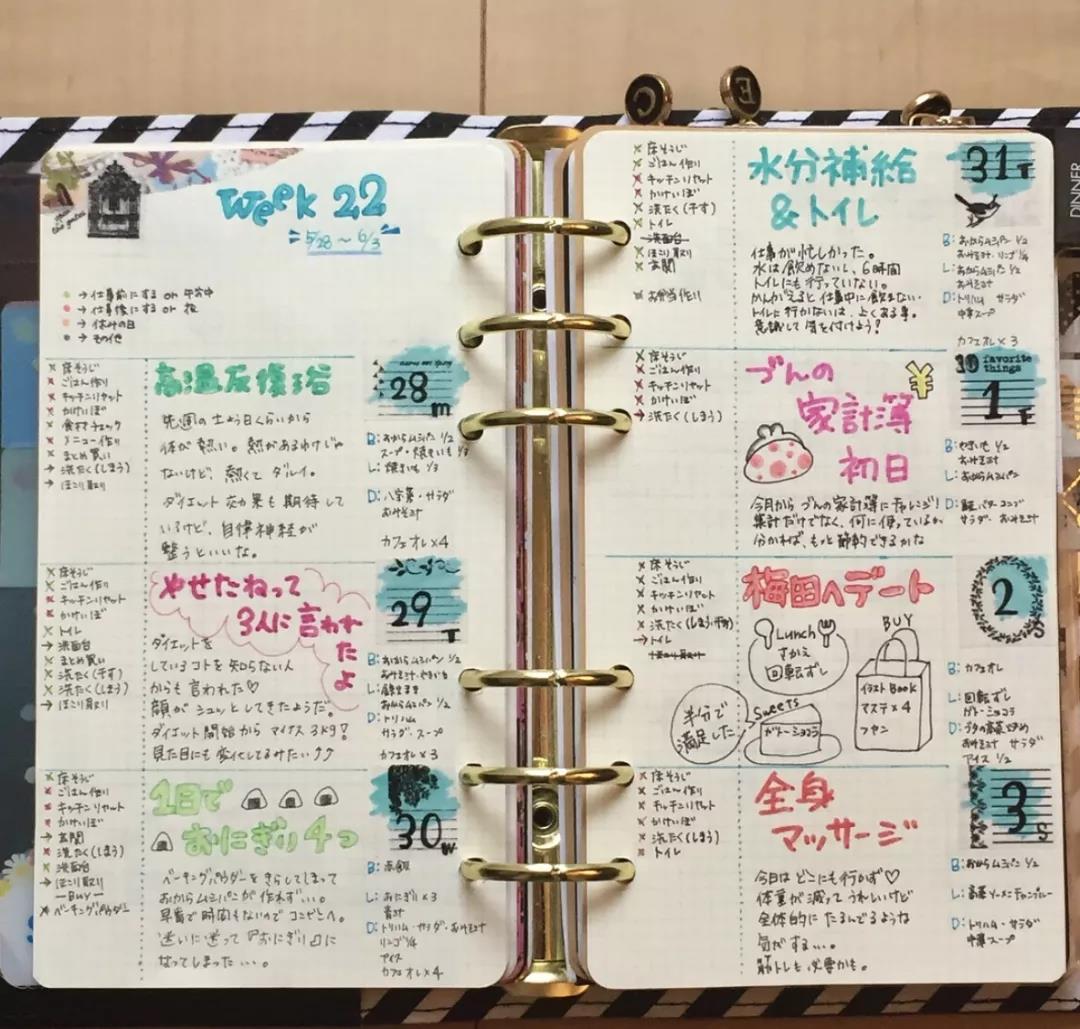 Week 22
5/28 〜 6/3
→ 仕事前にする or 午前中
→ 仕事後にする or 夜
→ 休みの日
→ その他
床そうじ
ごはん作り
キッチンリセット
かけいぼ
食材チェック
メニュー作り
まとめ買い
→ 洗たく(しまう)
→ ほこり取り
高温反復浴
先週の土よう日くらいから
体が熱い。熱があるわけじゃ
ないけど、熱くてダルイ。
ダイエット効果も期待して
いるけど、自律神経が
整うといいな。
28
m
B: おからムシパン 1/2
スープ・焼きいも 1/3
L: 焼きいも 1/3
D: 八宝菜・サラダ
おみそ汁
カフェオレ×4
床そうじ
ごはん作り
キッチンリセット
かけいぼ
トイレ
→ 洗面台
まとめ買い
洗たく(干す)
洗たく(しまう)
→ ほこり取り
やせたねって
3人に言われ
たよ
ダイエットを
しているコトを知らない人
からも言われた♡
顔がシュッとしてきたようだ。
ダイエット開始からマイナス3kg!
見た目にも変化してるみたい⤴⤴
29
T
B: おからムシパン 1/2
L:
おからムシパン 1/2
D: トリハム
サラダ・スープ
カフェオレ×3
床そうじ
ごはん作り
キッチンリセット
かけいぼ
→ 玄関
洗たく(しまう)
洗面台
→ ほこり取り
BUY
ベーキングパウダー
1日で
おにぎり4つ
ベーキングパウダーをきらしてしまって
おからムシパンが作れず…。
早番で時間もないのでコンビニへ。
迷いに迷って『おにぎり』に
なってしまった…。
30
W
B:
L: おにぎり×3
青汁
D: トリハム・サラダ・おみそ汁
リンゴ 1/4
アイス
カフェオレ×4
床そうじ
ごはん作り
キッチンリセット
かけいぼ
洗たく(干す)
トイレ
洗面台
ほこり取り
玄関
お弁当作り
水分補給
&トイレ
仕事が忙しかった。
水は飲めないし、6時間
トイレにも行っていない。
かんがえると仕事中に飲まない・
トイレに行かないは、よくある事。
意識して気を付けよう!
31
T
B: おからムシパン 1/2
おみそ汁・リンゴ 1/4
L: おからムシパン 1/2
おみそ汁
D: トリハム サラダ
中華スープ
カフェオレ×3
床そうじ
ごはん作り
キッチンリセット
かけいぼ
→ 洗たく(しまう)
づんの
家計簿
初日
¥
今月からづんの家計簿にチャレンジ!
集計だけでなく、何に使っているか
分かれば、もっと節約できるかな
10 favorite things
1
F
B: やきいも 1/2
おみそ汁
L: おからムシパン
D: 鮭バターコンブ
サラダ・おみそ汁
床そうじ
ごはん作り
キッチンリセット
かけいぼ
洗たく
→ トイレ
ほこり取り
梅田へデート
Lunch
さかえ
回転ずし
半分で
満足した
Sweets
ガトーショコラ
BUY
イラストBook
マステ×4
フセン
2
B: カフェオレ
L: 回転ずし
ガトーショコラ
D:
おみそ汁 サラダ
アイス 1/2
床そうじ
ごはん作り
キッチンリセット
かけいぼ
洗たく(しまう)
トイレ
全身
マッサージ
今日はどこにも行かず♡
体重が減ってうれしいけど
全体的にたるんでるような
気がする…。
筋トレも必要かも。
3
B: おからムシパン 1/2
L: 高菜ソーメンチャンプルー
D: トリハム・サラダ
中華スープ
DINNER
C
E